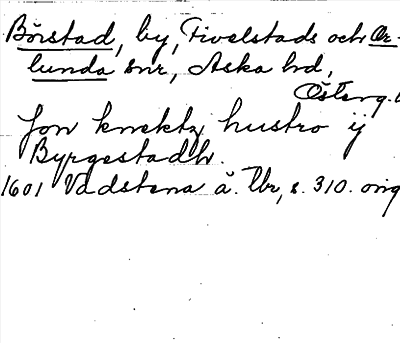 Börstad, by, Fivelstads och Or-
lunda snr, Aska hd,
Österg.
Jon knektz hustro ij
Byrgestadh.
1601 Vadstena å. Ubr, s. 310. orig